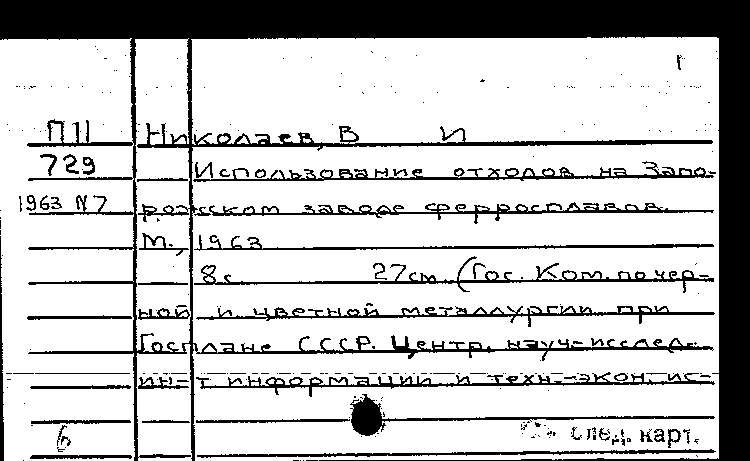 П11 Николаев, В И
729 Использование отходов на Запо-
1963 N7 рожском заводе ферросплавов.
М., 1963
8с 27см (Гос. Ком. по чер-
ной и цветной металлургии при
Госплане СССР. Центр. науч-исслед.
ин-т информации и техн.-экон. ис-
6 след. карт.